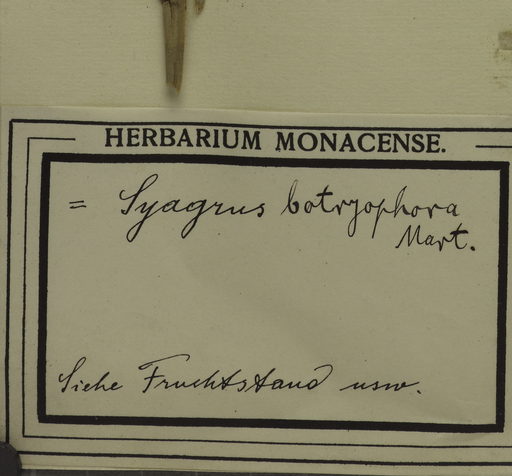 HERBARIUM MONACENSE.
= Syagrus botryophora
Mart.
Siehe Fruchtstand usw.